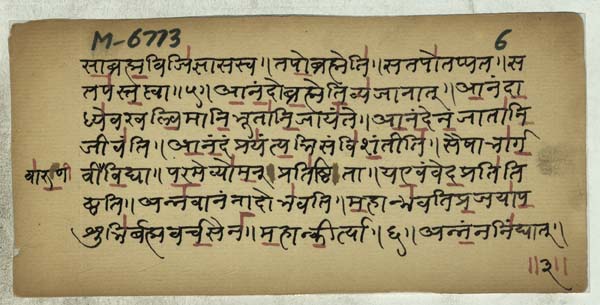 M-6773 6
सोब्रह्मविजिज्ञासस्व॥तपोब्रह्मेति॥सतपोतप्यत॥स
तपस्तप्त्वा॥५॥आनंदोब्रह्मेतिव्यजानात्॥आनंदा
ध्येवखल्विमानिभूतानिजायंते॥आनंदेनजातानि
जीवंति॥आनंदंप्रयंत्यभिसंविशंतीति॥सैषाभार्ग
वारुणी वीविद्या॥परमेव्योमन्प्रतिष्ठिता॥यएवंवेदप्रतिति
ष्ठति॥अन्नवानंनादोभवति॥महान्भवतिप्रजयाप
शुभिर्ब्रह्मवर्चसेन॥महान्कीर्त्या॥६॥अन्नंननिंद्यात्॥
॥३॥